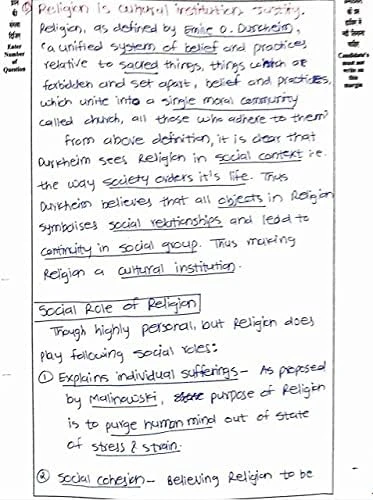 Religion is cultural institution. Justify.
Religion, as defined by Emile D. Durkheim,
"a unified system of belief and practices
relative to sacred things, things which are
forbidden and set apart, belief and practices,
which unite into a single moral community
called church, all those who adhere to them"
From above definition, it is clear that
Durkheim sees Religion in social context i.e.
the way society orders it's life. Thus
Durkheim believes that all objects in Religion
symbolises social relationships and lead to
continuity in social group. Thus making
Religion a cultural institution.
Social Role of Religion
Though highly personal, but Religion does
play following social roles:
① Explains individual sufferings - As proposed
by Malinowski, purpose of Religion
is to purge human mind out of state
of stress & strain.
② Social cohesion - Believing Religion to be
Enter
Number
of
Question
Candidate's
must not
write on
this
margin